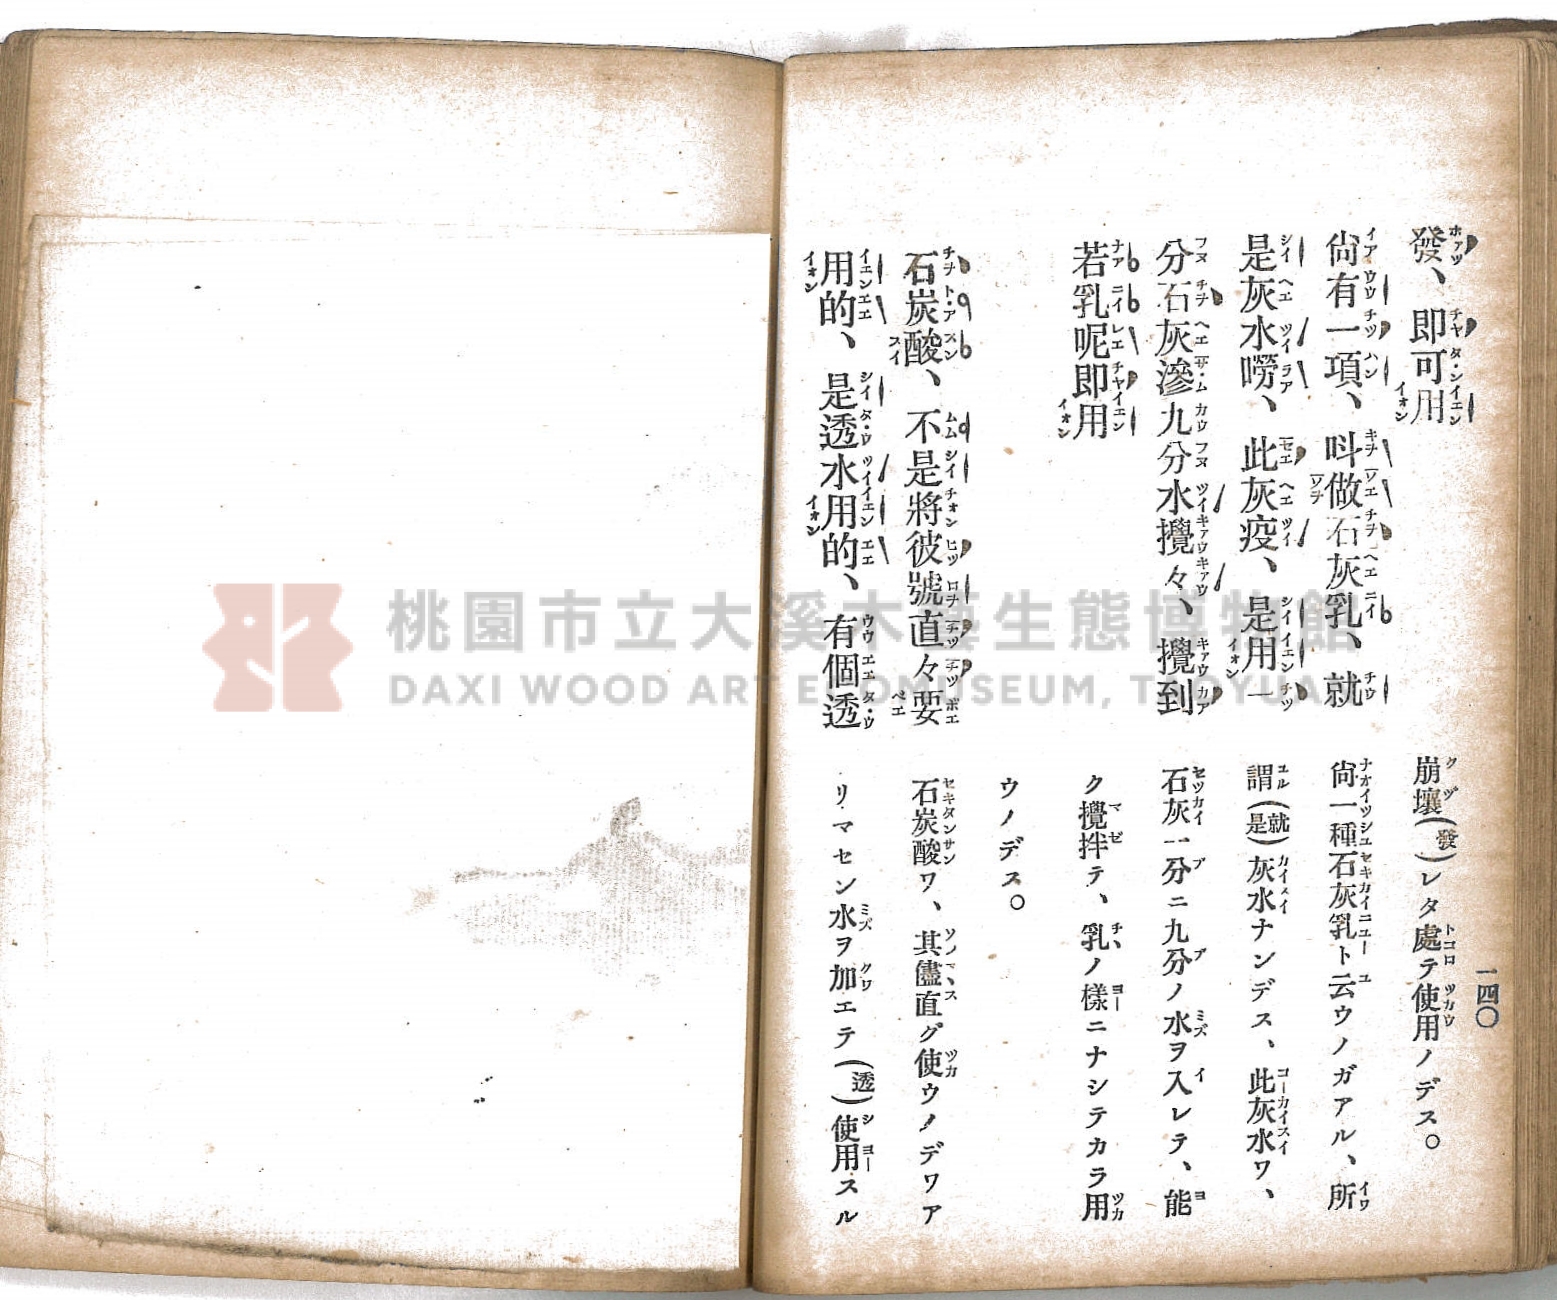 一四〇
發、卽可用
尙有一項、呌做石灰乳、就
是灰水嘮、此灰疫、是用一
分石灰滲九分水攪々、攪到
若乳呢卽用
石炭酸、不是將彼號直々要
用的、是透水用的、有個透
崩壞(發)レタ處テ使用ノデス。
尙一種石灰乳ト云ウノガアル、所
謂(就是)灰水ナンデス、此灰水ワ、
石灰一分ニ九分ノ水ヲ入レテ、能
ク攪拌テ、乳ノ樣ニナシテカラ用
ウノデス。
石炭酸ワ、其儘直グ使ウノデワア
リマセン水ヲ加エテ(透)使用スル
桃園市立大溪木藝生態博物館
DAXI WOOD ART ECOMUSEUM, TAOYUAN